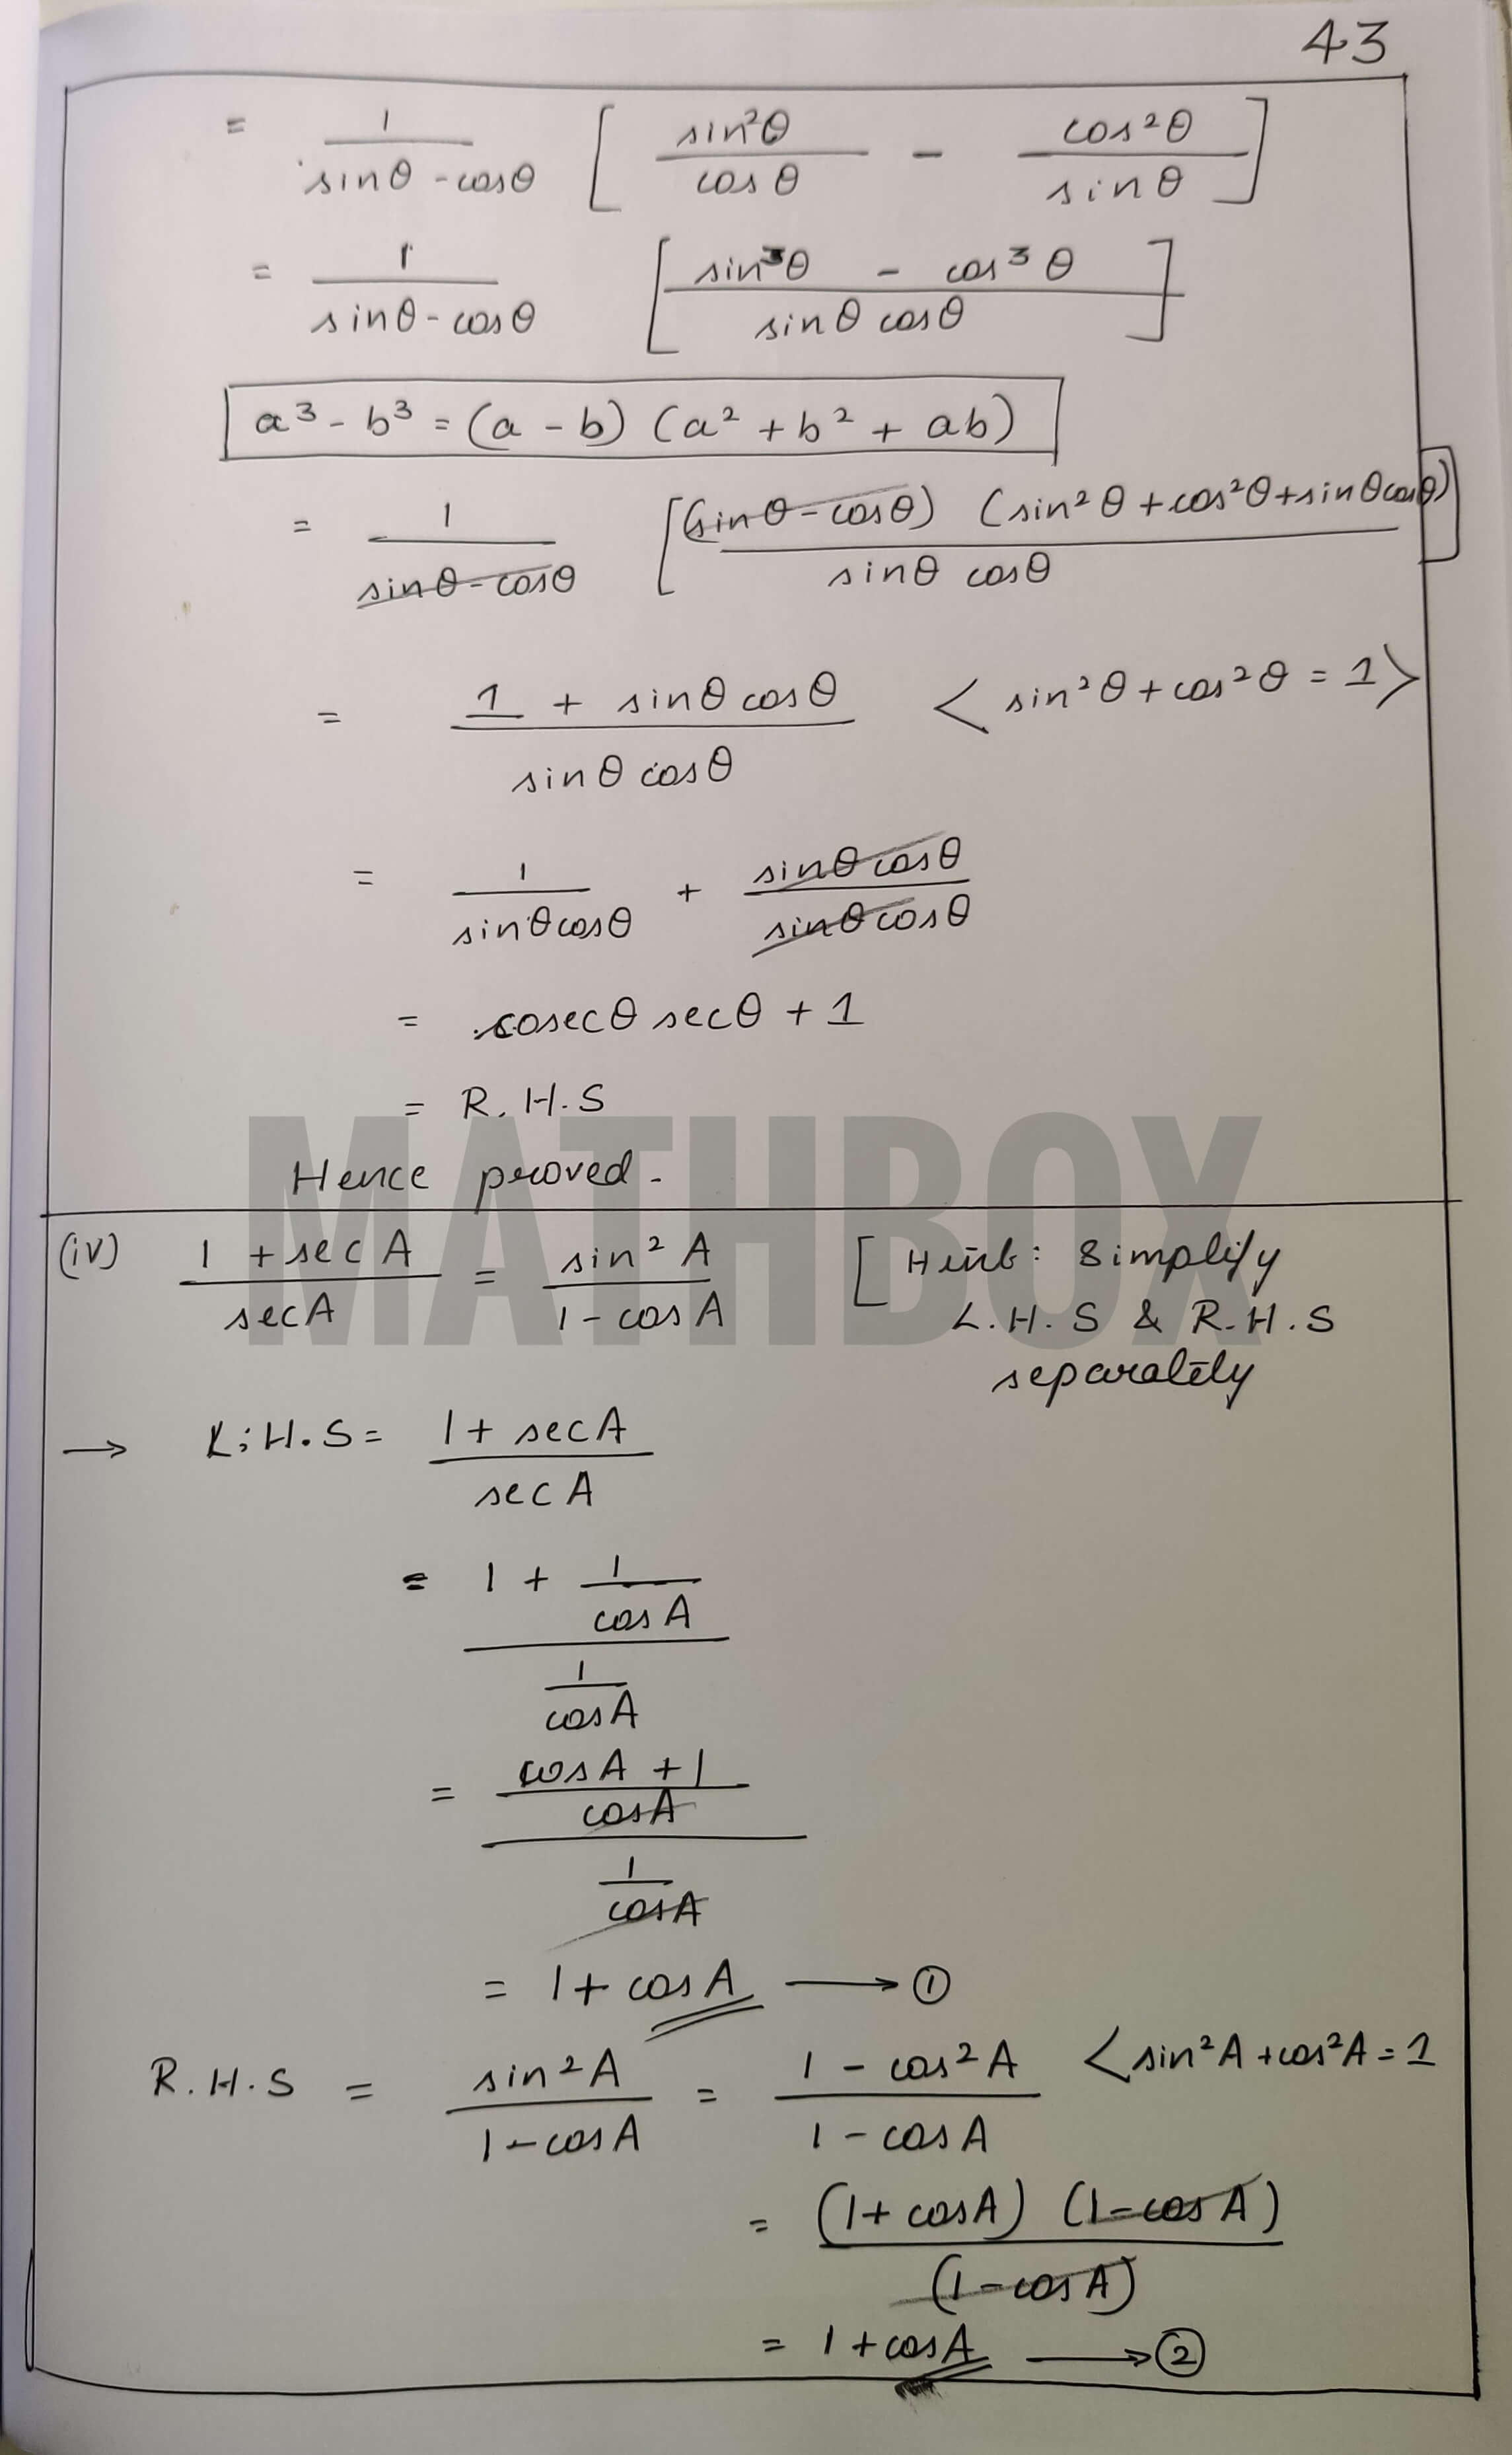 43
= 1/(sinθ - cosθ) [ sin²θ/cosθ - cos²θ/sinθ ]
= 1/(sinθ - cosθ) [ (sin³θ - cos³θ)/(sinθ cosθ) ]
a³ - b³ = (a - b) (a² + b² + ab)
= 1/(sinθ - cosθ) [ (sinθ - cosθ) (sin²θ + cos²θ + sinθ cosθ)/(sinθ cosθ) ]
= (1 + sinθ cosθ)/(sinθ cosθ) < sin²θ + cos²θ = 1 >
= 1/(sinθ cosθ) + (sinθ cosθ)/(sinθ cosθ)
= cosecθ secθ + 1
= R.H.S
Hence proved.
MATHBOX
(iv) (1 + sec A)/(sec A) = sin² A/(1 - cos A) [ Hint: Simplify
L.H.S & R.H.S
separately
→ L.H.S = (1 + sec A)/(sec A)
= (1 + 1/cos A)/(1/cos A)
= ((cos A + 1)/cos A)/(1/cos A)
= 1 + cos A → ①
R.H.S = sin² A/(1 - cos A) = (1 - cos² A)/(1 - cos A) < sin² A + cos² A = 1
= (1 + cos A) (1 - cos A)/(1 - cos A)
= 1 + cos A → ②